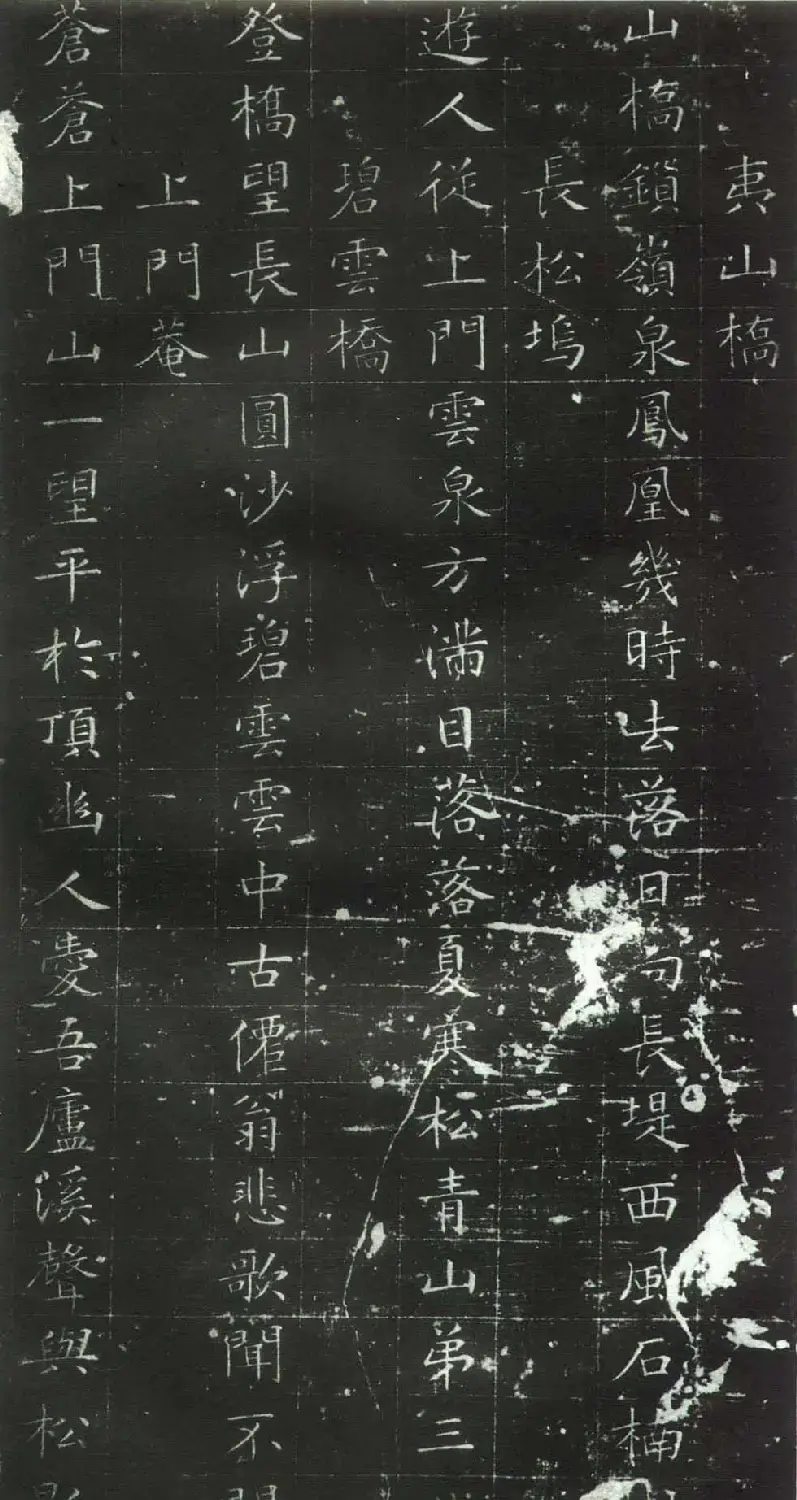 夷山橋
山橋鎖嶺泉鳳凰幾時去落日句長堤西風石楠
長松塢
遊人從上門雲泉方滿目落落夏寒松青山弟三
碧雲橋
登橋望長山圓沙浮碧雲雲中古僊翁悲歌聞不
上門菴
蒼蒼上門山一望平於頂幽人愛吾廬溪聲與松